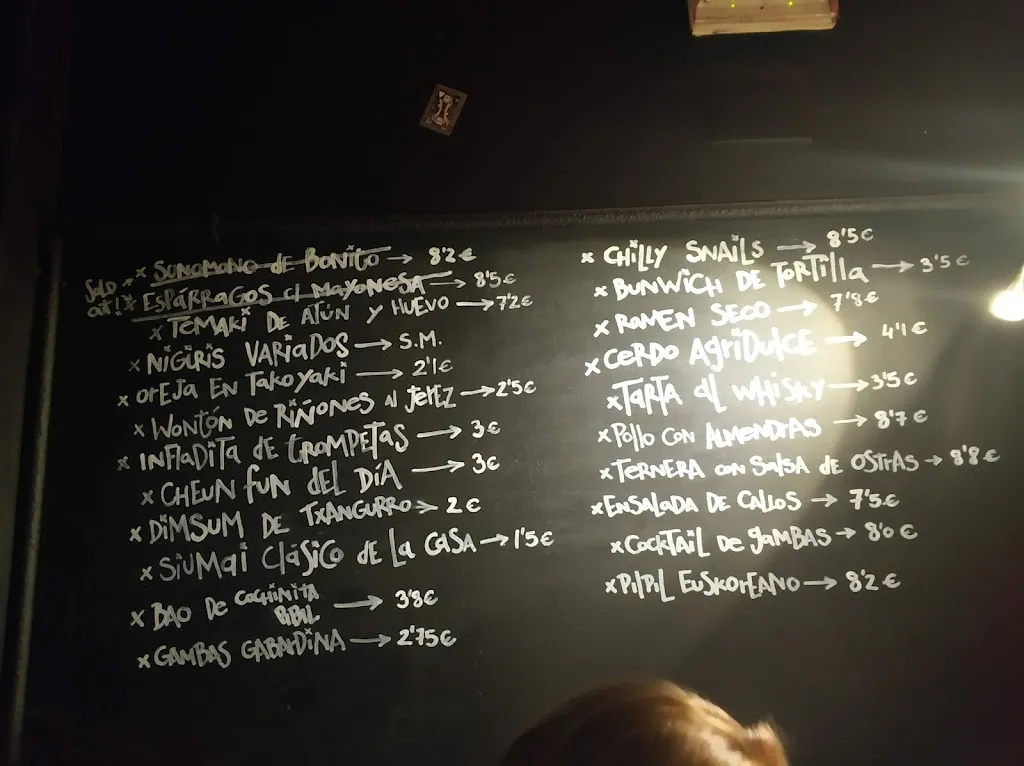 x SUNOMONO dE BONITO → 8'2€
SOLO x ESPÁRRAGOS c/ MAYONESA → 8'5€
x TEMAKI DE ATÚN Y HUEVO → 7'2€
x NIGIRIS VARIADOS → S.M.
x OrEJA EN TaKoyaKi → 2'1€
x WONTÓN de RIÑONES Al JEREZ → 2'5€
x INFLADITA dE TROMPETAS → 3€
x CHEUN fUN dEL DÍA → 3€
x DiMSUM DE TXANGURRO → 2€
x SIUMai ClÁSiCO dE La CaSA → 1'5€
x BAO DE COCHINITA PIBIL → 3'8€
x GAMBAS GABARDINA → 2'75€
x CHiLLY SNAILS → 8'5€
x BUNWICH DE TORTilla → 3'5€
x RAMEN SECO → 7'8€
x CERDO AgRiDulCE → 4'1€
x TARTA al WHiSKY → 3'5€
x POllO CON AlMENDRAS → 8'7€
x TERNERA con SalSA dE OSTRAS → 8'8€
x ENSALADA DE CAllOS → 7'5€
x COCKTAiL DE gAMBAS → 8'0€
x PilPiL EUSKOREANO → 8'2€